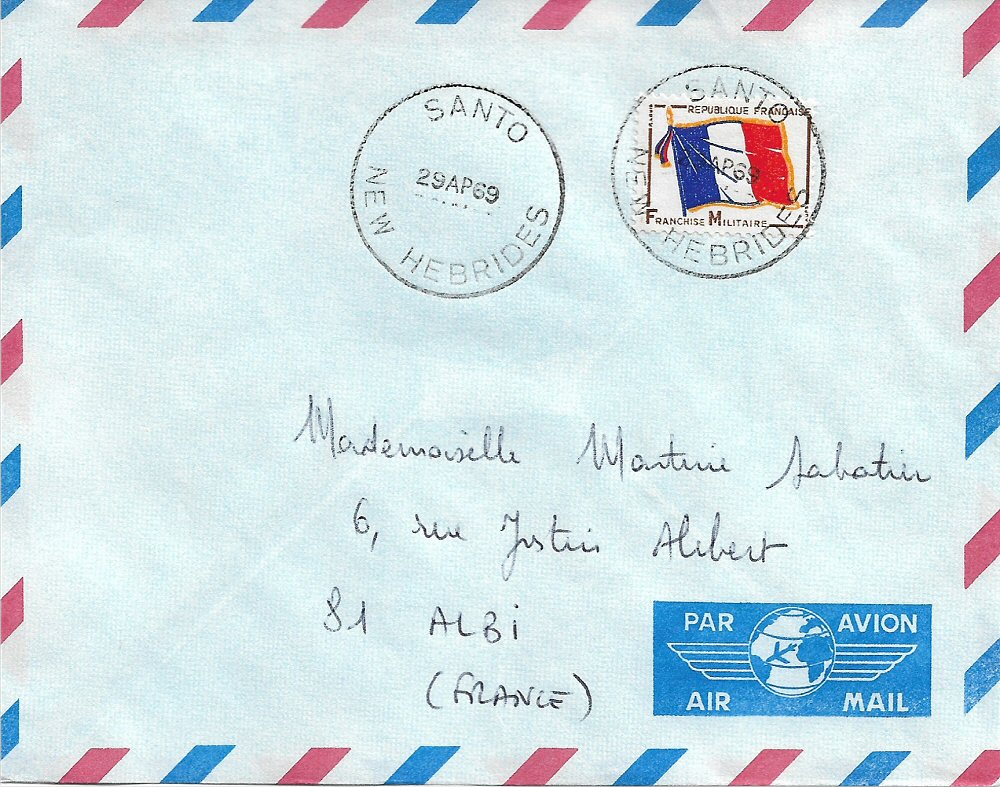 SANTO
29AP69
NEW HEBRIDES
SANTO
REPUBLIQUE FRANÇAISE
AP69
FRANCHISE MILITAIRE
NEW HEBRIDES
Mademoiselle Martine Sabatier
6, rue Justin Alibert
81 ALBi
(FRANCE)
PAR AVION
AIR MAIL